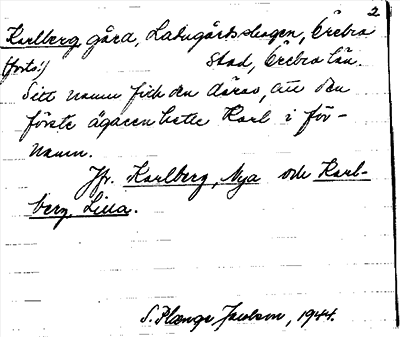 2
Karlberg gård, Ladugårdsskogen, Örebro
(forts.) stad, Örebro län.
Sitt namn fick den därav, att den
förste ägaren hette Karl i för-
namn.
Jfr. Karlberg, Nya och Karl-
berg, Lilla.
S. Plænge Jacobson, 1944.